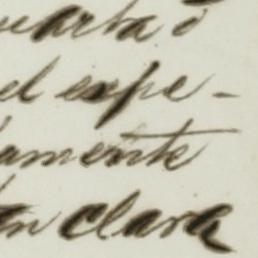 uarta ó
el expe-
amente
an clara